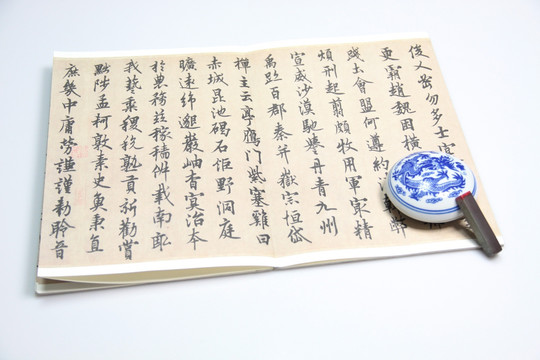 俊乂密勿多士寔
更霸趙魏困橫
踐土會盟何遵約
煩刑起翦頗牧用軍最精
宣威沙漠馳譽丹青九州
禹跡百郡秦并嶽宗恒岱
禪主云亭鴈門紫塞雞田
赤城昆池碣石鉅野洞庭
曠遠綿邈巖岫杳冥治本
於農務茲稼穡俶載南畝
我藝黍稷稅熟貢新勸賞
黜陟孟軻敦素史魚秉直
庶幾中庸勞謙謹勅聆音